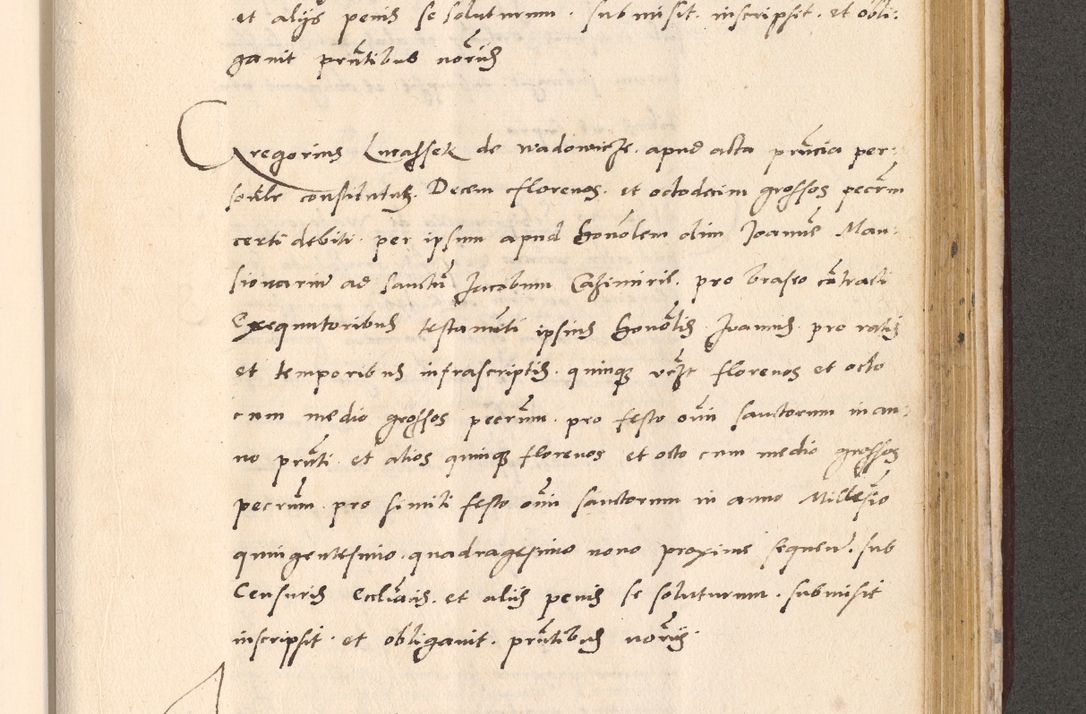 et alijs penis se soluturum. submisit. inscripsit. et obli:
gauit pñtibus nõrijs
Gregorius Lucassek de Wadowicze. apud acta pñcia per:
soñlr constitutus. Decem florenos. et octodecim grossos pecũm
certi debiti. per ipsum apud honõlem olim Joannẽ Man:
sionariũ ad sanctũ Jacobum Cazimirie. pro braseo cõtracti
Exequutoribus testamẽti ipsius honõlis Joannis. pro ratis
et temporibus infrascriptis. quinque vcz florenos et octo
cum medio grossos pecũm. pro festo oĩm sanctorum in an:
no pñti. et alios quinque florenos et octo cum medio grossos
pecũm. pro simili festo oĩm sanctorum in anno Millesĩo
quingentesimo. quadragesimo nono proxime sequeñ. sub
Censuris Eccliãcis. et alijs penis se soluturum. submisit
inscripsit. et obligauit. pñtibus nõrijs.